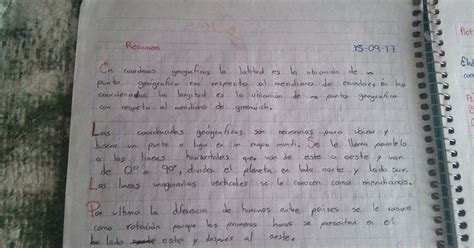 Resumen 15-09-17
En coordenadas geograficas la latitud es la ubicación de un
punto geografico con respecto al meridiano de ecuador, en las
coordenadas la longitud es la ubicación de un punto geografico
con respecto al meridiano de greenwich.
Las coordenadas geógraficas son necesarias para ubicar y
buscar un punto o lugar en un mapa mundi. Se le llama paralelo
a las lineas horizontales que van de este a oeste y van
de 0° a 90°, dividen el planeta en lado norte, y lado sur.
Las lineas imaginarias verticales se le conocen como meridianos.
Por ultimo la diferencia de horarios entre paises se le conoce
como rotación porque las primeras horas se presentan en el
lado este y después al oeste.